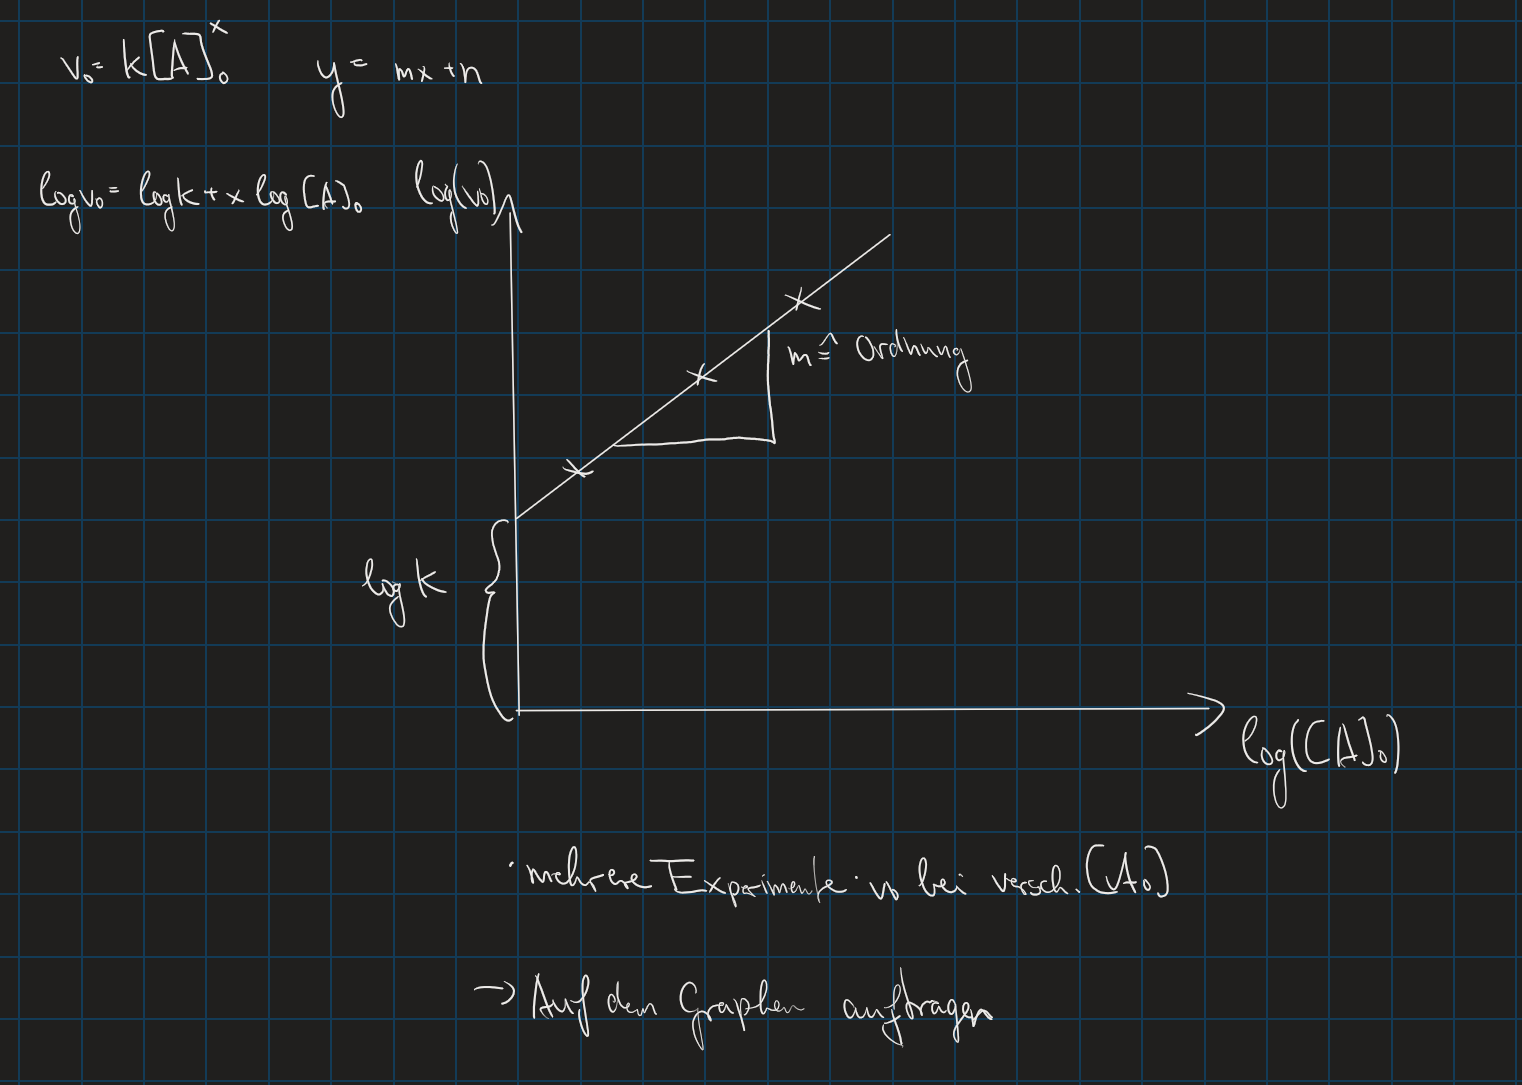 v₀ = k[A]₀ˣ y = mx + n
log v₀ = log k + x log [A]₀ log(v₀)
m ≙ Ordnung
log k
log([A]₀)
· mehrere Experimente · v₀ bei versch. [A₀]
→ Auf dem Graphen auftragen